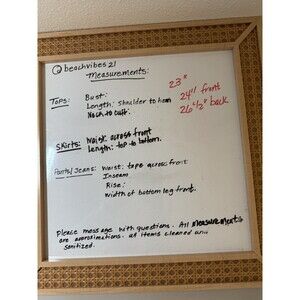 @beachvibes21
Measurements:
Tops: Bust: 23"
Length: Shoulder to hem 24" front
Neck to cuff. 26 1/2" back
Skirts: Waist: across front
Length: top to bottom.
Pants/Jeans: Waist: tape across front
Inseam
Rise:
width of bottom leg front.
Please message with questions. All measurements
are approximations. all items cleaned and
sanitized.